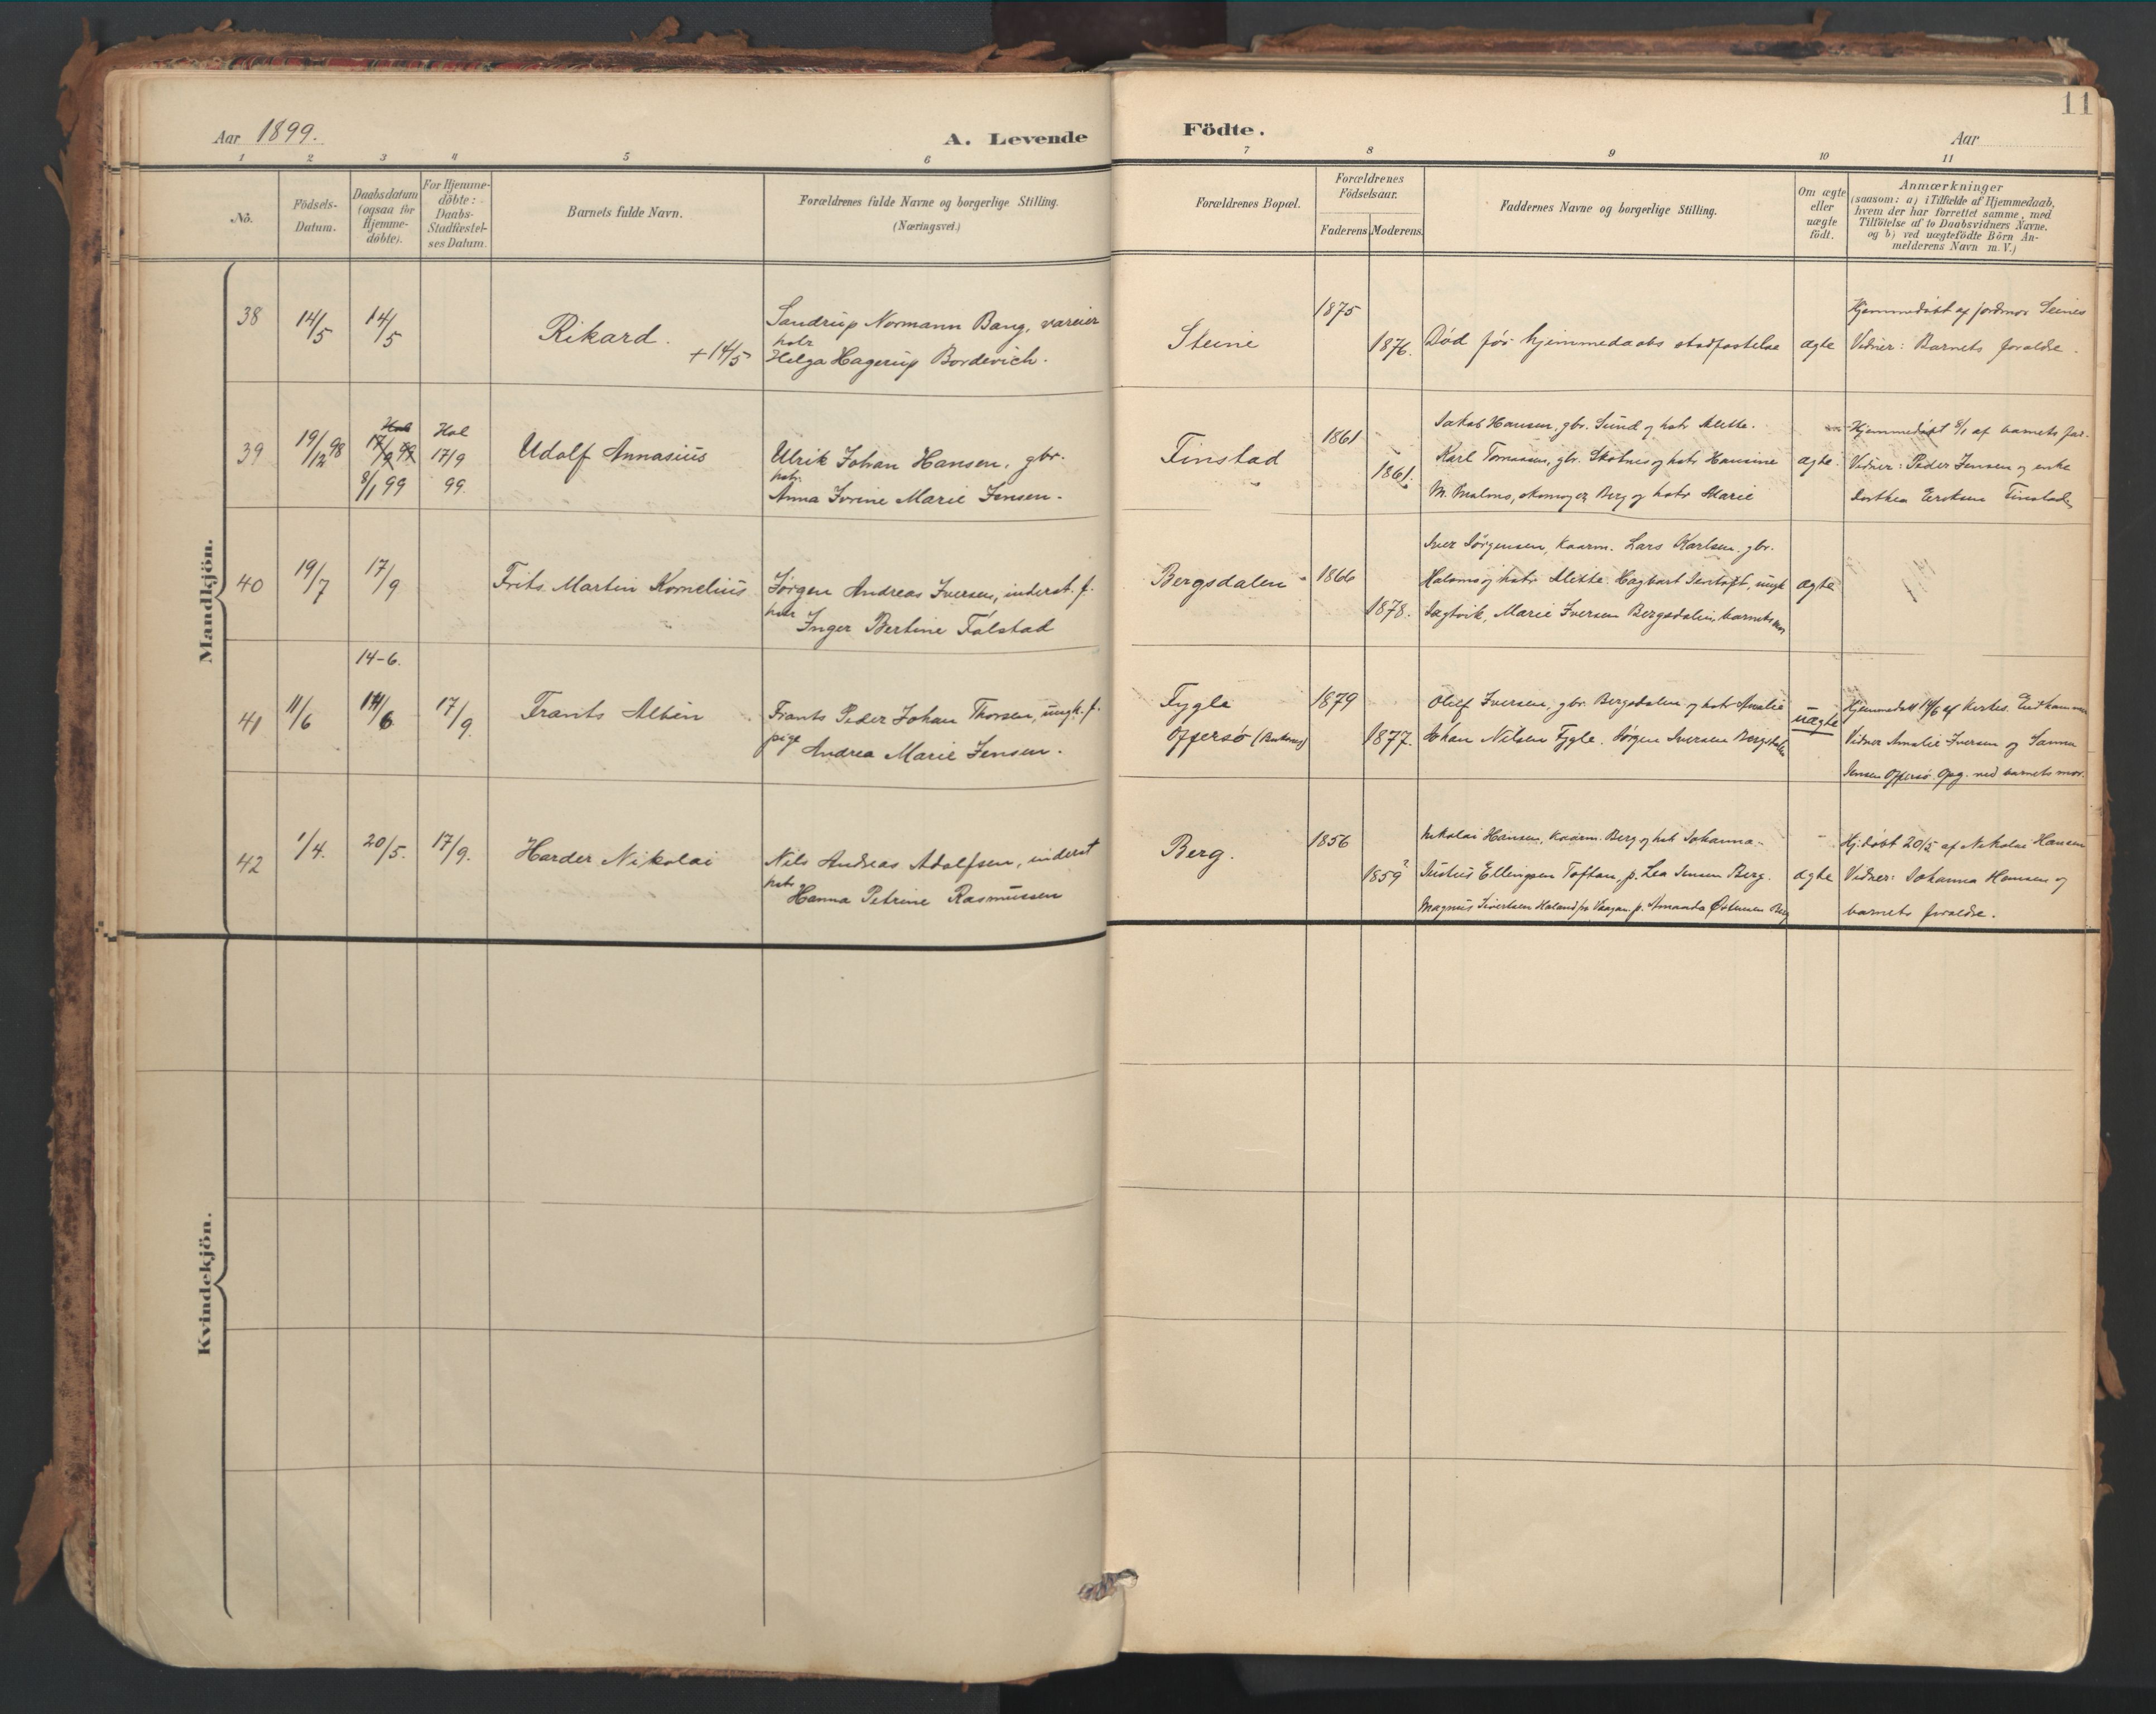 Aar 1899.
A. Levende Födte.
Aar
11
1 2 3 4 5 6 7 8 9 10 11
No.
Födsels-
Datum.
Daabsdatum
(ogsaa for
Hjemme-
døbte).
For Hjemme-
døbte:
Daabs-
Stadfæstel-
ses Datum.
Barnets fulde Navn.
Forældrenes fulde Navne og borgerlige Stilling.
(Næringsvei.)
Forældrenes Bopæl.
Forældrenes
Födselsaar.
Faderens Moderens
Faddernes Navne og borgerlige Stilling.
Om ægte
eller
uægte
födt.
Anmærkninger
(saasom: a) i Tilfælde af Hjemmedaab,
hvem der har forrettet samme, med
Tilföielse af to Daabsvidners Navne.
og b) ved uægtefödte Börn An-
melderens Navn m.V.)
Mandkjön.
38
14/5
14/5
Rikard.
+14/5
Sandrup Normann Bang, vareier
hstr
Helga Hagerup Bordevich.
Steine
1875
1876.
Död för hjemmedaabs stadfæstelse
ægte
Hjemmedöbt af jordmor Steines
Vidner: Barnets forældre.
39
19/12 98
Hol
17/9 99
8/1 99
Hol
17/9
99.
Udolf Annasius
Ulrik Johan Hansen, gbr.
hstr.
Anna Ivrine Marie Jensen.
Finstad
1861
1861.
Jakob Hansen, gbr. Sund og hstr Alette.
Karl Tomassen, gbr. Skotnes og hstr Hansine
M. Malms, skomager, Berg og hstr Marie
ægte.
Hjemmedöbt 8/1 af barnets far.
Vidner: Peder Jensen og enke
Dorthea Eriksen Finstad
40
19/7
17/9
Frits Martin Kornelius
Jörgen Andreas Iversen, inderst. f.
hstr
Inger Bertine Falstad
Bergsdalen
1866
1878.
Iver Jörgensen, kaarm. Lars Karlsen, gbr.
og hstr Alette. Hagbart ungk
Marie Iversen Bergsdalen, barnets mor
ægte
41
11/6
14-6.
14/6
17/9.
Frants Albin
Frants Peder Johan Thorsen, ungk. f.
pige
Andrea Marie Jensen.
Fygle
Offersö (Buksnes)
1879
1877.
Oluf Iversen, gbr. Bergsdalen og hstr Amalie
Johan Nilsen Fygle. Jörgen Iversen Bergsdalen
uægte
Hjemmedöbt 14/6 af
Vidner Amalie Iversen og Sanna
Jensen Offersö. Opg. ved barnets mor.
42
1/4.
20/5.
17/9.
Harder Nikolai
Nils Andreas Adolfsen, inderst
hstr
Hanna Petrine Rasmussen
Berg.
1856
1859?
Nikolai Hansen, kaarm. Berg og hstr Johanna.
Justus Ellingsen Toftan, p. Lea Jensen Berg.
Magnus Sivertsen Haland pr Vaagan. p. Amanda Berg
ægte
Hj.döbt 20/5 af Nikolai Hansen
Vidner: Johanna Hansen og
barnets forældre.
Kvindekjön.